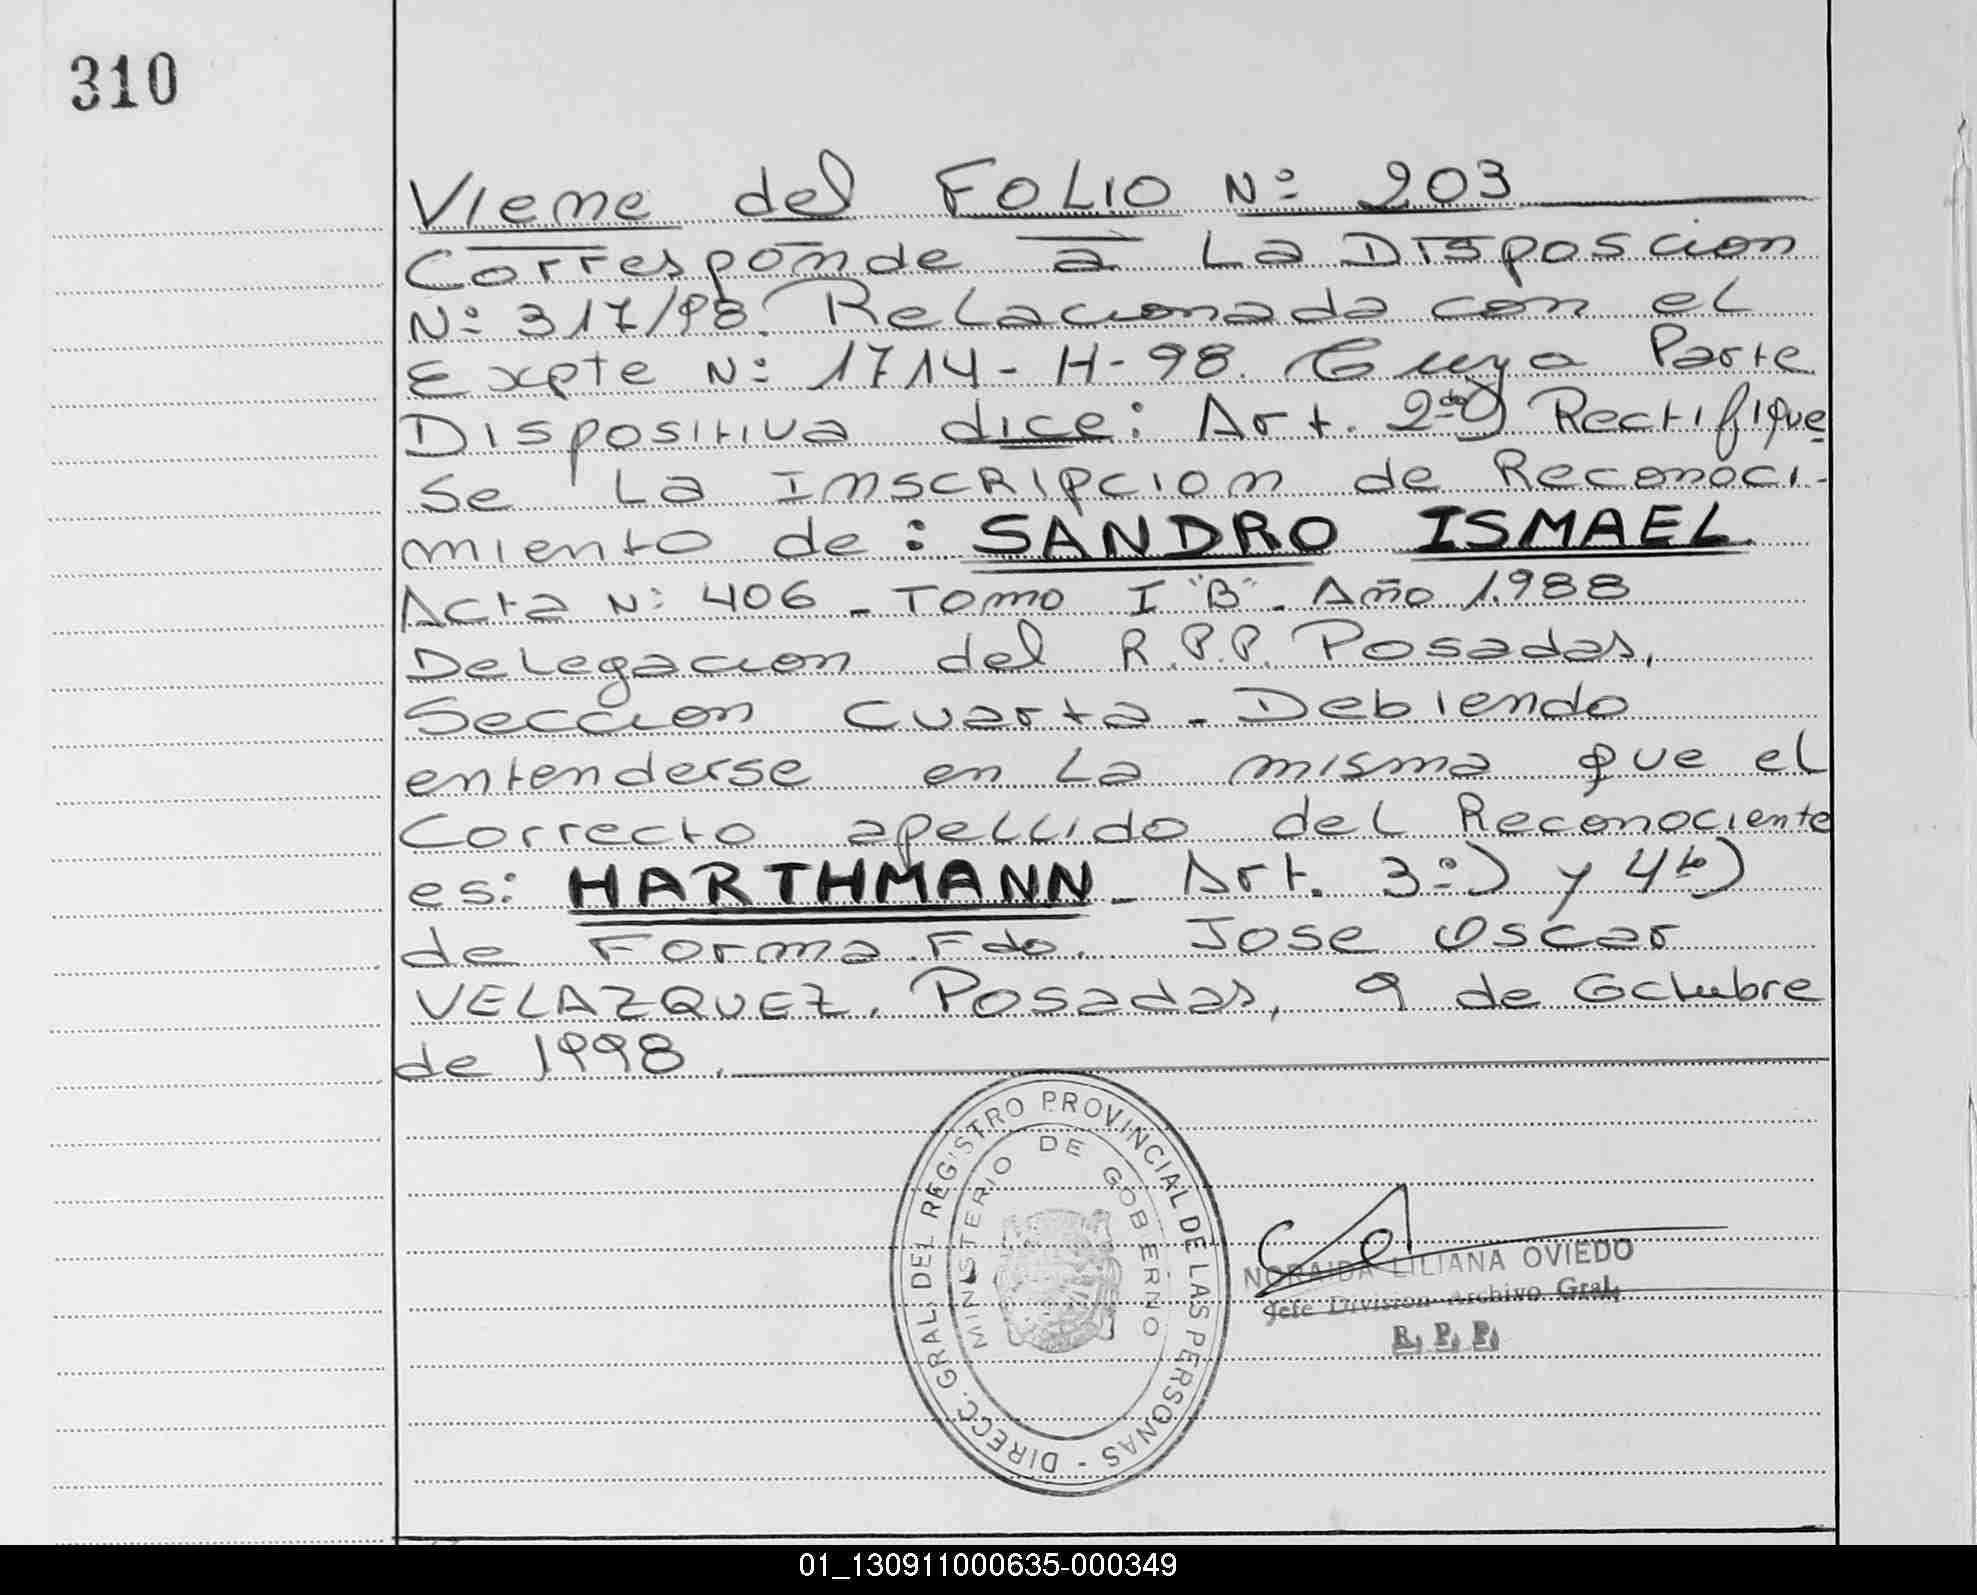 310
Viene del FOLIO Nº 203
Corresponde a La Disposcion
Nº 317/98. Relacionada con el
Expte Nº 1714-H-98. Cuya Parte
Dispositiva dice: Art. 2do) Rectifique
se La Inscripcion de Reconoci-
miento de: SANDRO ISMAEL
Acta Nº 406 - Tomo I "B" - Año 1.988
Delegacion del R.P.P. Posadas,
Seccion Cuarta - Debiendo
entenderse en La misma que el
Correcto apellido del Reconociente
es: HARTHMANN - Art. 3º) y 4to)
de Forma. Fdo. Jose Oscar
VELAZQUEZ. Posadas, 9 de Octubre
de 1998.
DIRECC. GRAL. DEL REGISTRO PROVINCIAL DE LAS PERSONAS -
MINISTERIO DE GOBIERNO
NORAIDA LILIANA OVIEDO
Jefe Division Archivo Gral.
R. P. P.
01_130911000635-000349